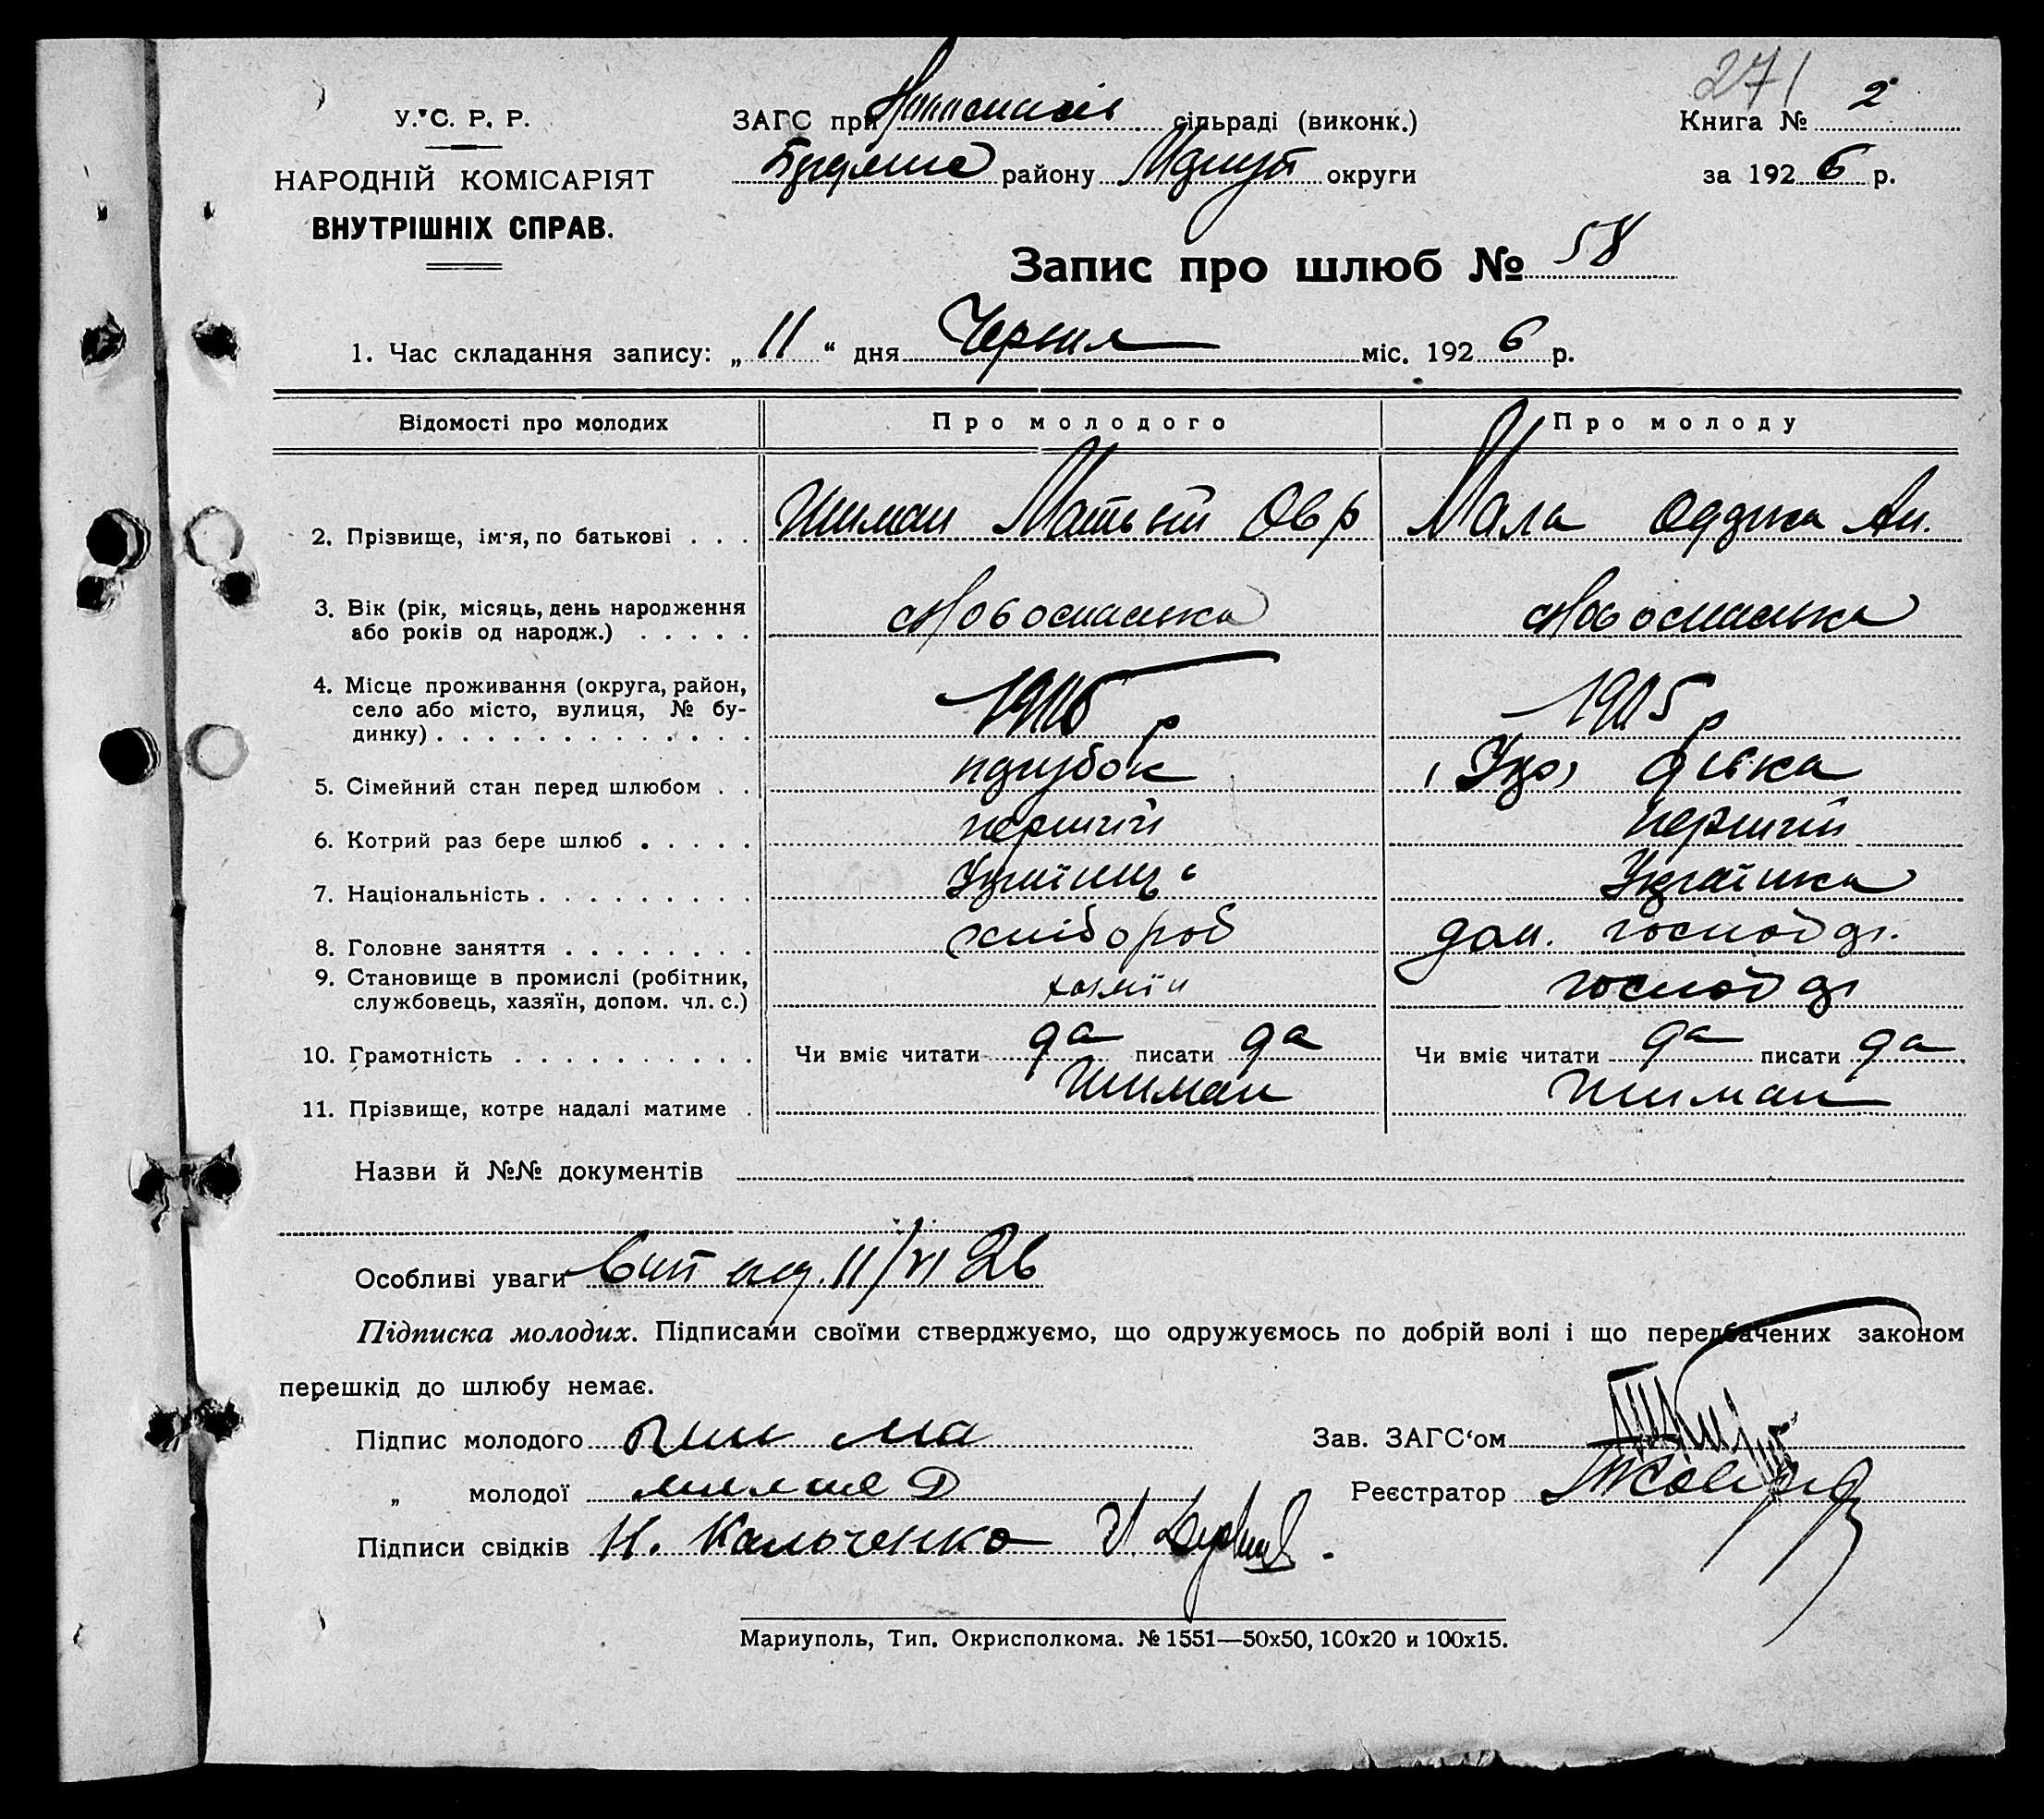 271
У. С. Р. Р. ЗАГС при сільраді (виконк.) Книга № 2
НАРОДНІЙ КОМІСАРІЯТ району округи за 1926 р.
ВНУТРІШНІХ СПРАВ.
Запис про шлюб № 58
1. Час складання запису: „ 11 “ дня Червня міс. 1926 р.
Відомості про молодих Про молодого Про молоду
2. Прізвище, ім'я, по батькові . . . Шиман Матвій Овр Мала Ан.
3. Вік (рік, місяць, день народження
або років од народж.) . . . . . Новоспаська Новоспаська
4. Місце проживання (округа, район,
село або місто, вулиця, № бу-
динку) . . . . . . . . . . . . . р 1905 р
5. Сімейний стан перед шлюбом . . парубок дівка
6. Котрий раз бере шлюб . . . . . перший перший
7. Національність . . . . . . . . . Українець Українка
8. Головне заняття . . . . . . . . хлібороб дом. господ.
9. Становище в промислі (робітник,
службовець, хазяїн, допом. чл. с.) хазяїн господ
10. Грамотність . . . . . . . . . . Чи вміє читати да писати да Чи вміє читати да писати да
11. Прізвище, котре надалі матиме . Шиман Шиман
Назви й №№ документів
Особливі уваги 11/VI 26
Підписка молодих. Підписами своїми стверджуємо, що одружуємось по добрій волі і що передбачених законом
перешкід до шлюбу немає.
Підпис молодого Зав. ЗАГС‘ом
„ молодої Реєстратор
Підписи свідків Н. Кальченко
Мариуполь, Тип. Окрисполкома. № 1551—50х50, 100х20 и 100х15.